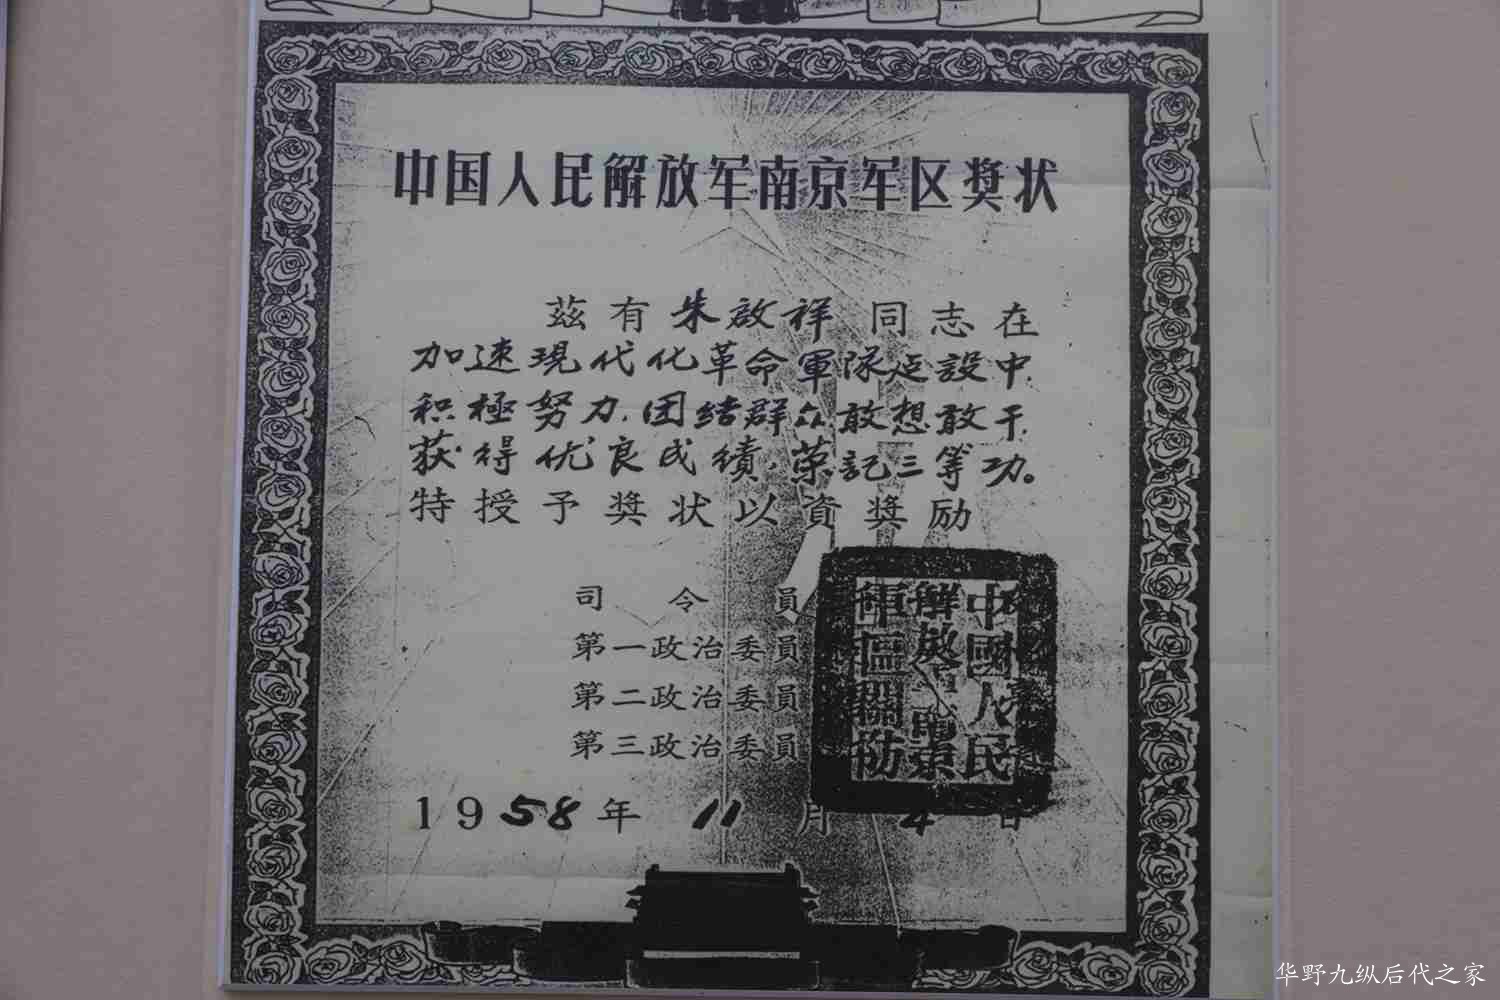 中国人民解放军南京军区奖状
茲有朱啟祥同志在
加速現代化革命軍隊建設中,
积極努力,团结群众敢想敢干,
获得优良成績,荣記三等功。
特授予奖状以資奖励
司令員
第一政治委員
第二政治委員
第三政治委員
中國人民
解放軍南京
軍區關防
1958年11月4日
华野九纵后代之家